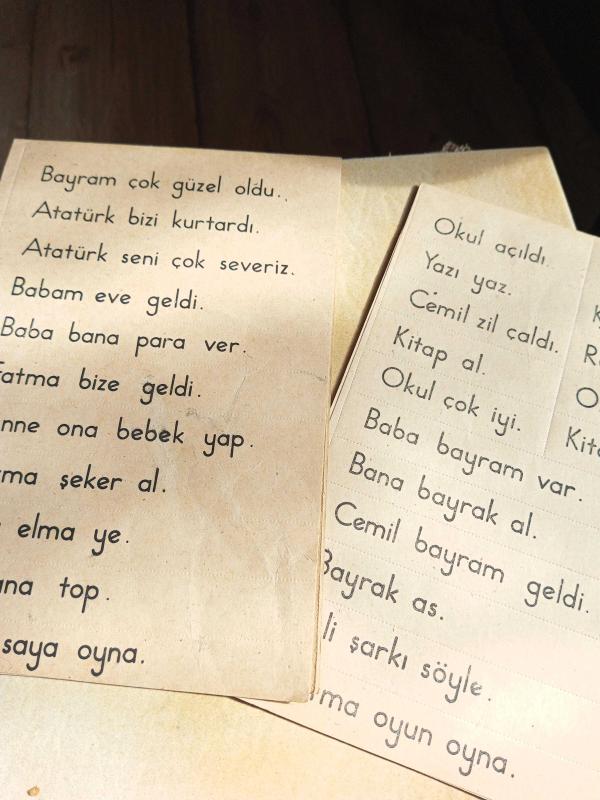 Bayram çok güzel oldu.
Atatürk bizi kurtardı.
Atatürk seni çok severiz.
Babam eve geldi.
Baba bana para ver.
bize geldi.
ona bebek yap.
şeker al.
elma ye.
top.
oyna.
Okul açıldı.
Yazı yaz.
Cemil zil çaldı.
Kitap al.
Okul çok iyi.
Baba bayram var.
Bana bayrak al.
Cemil bayram geldi.
Bayrak as.
şarkı söyle.
oyun oyna.